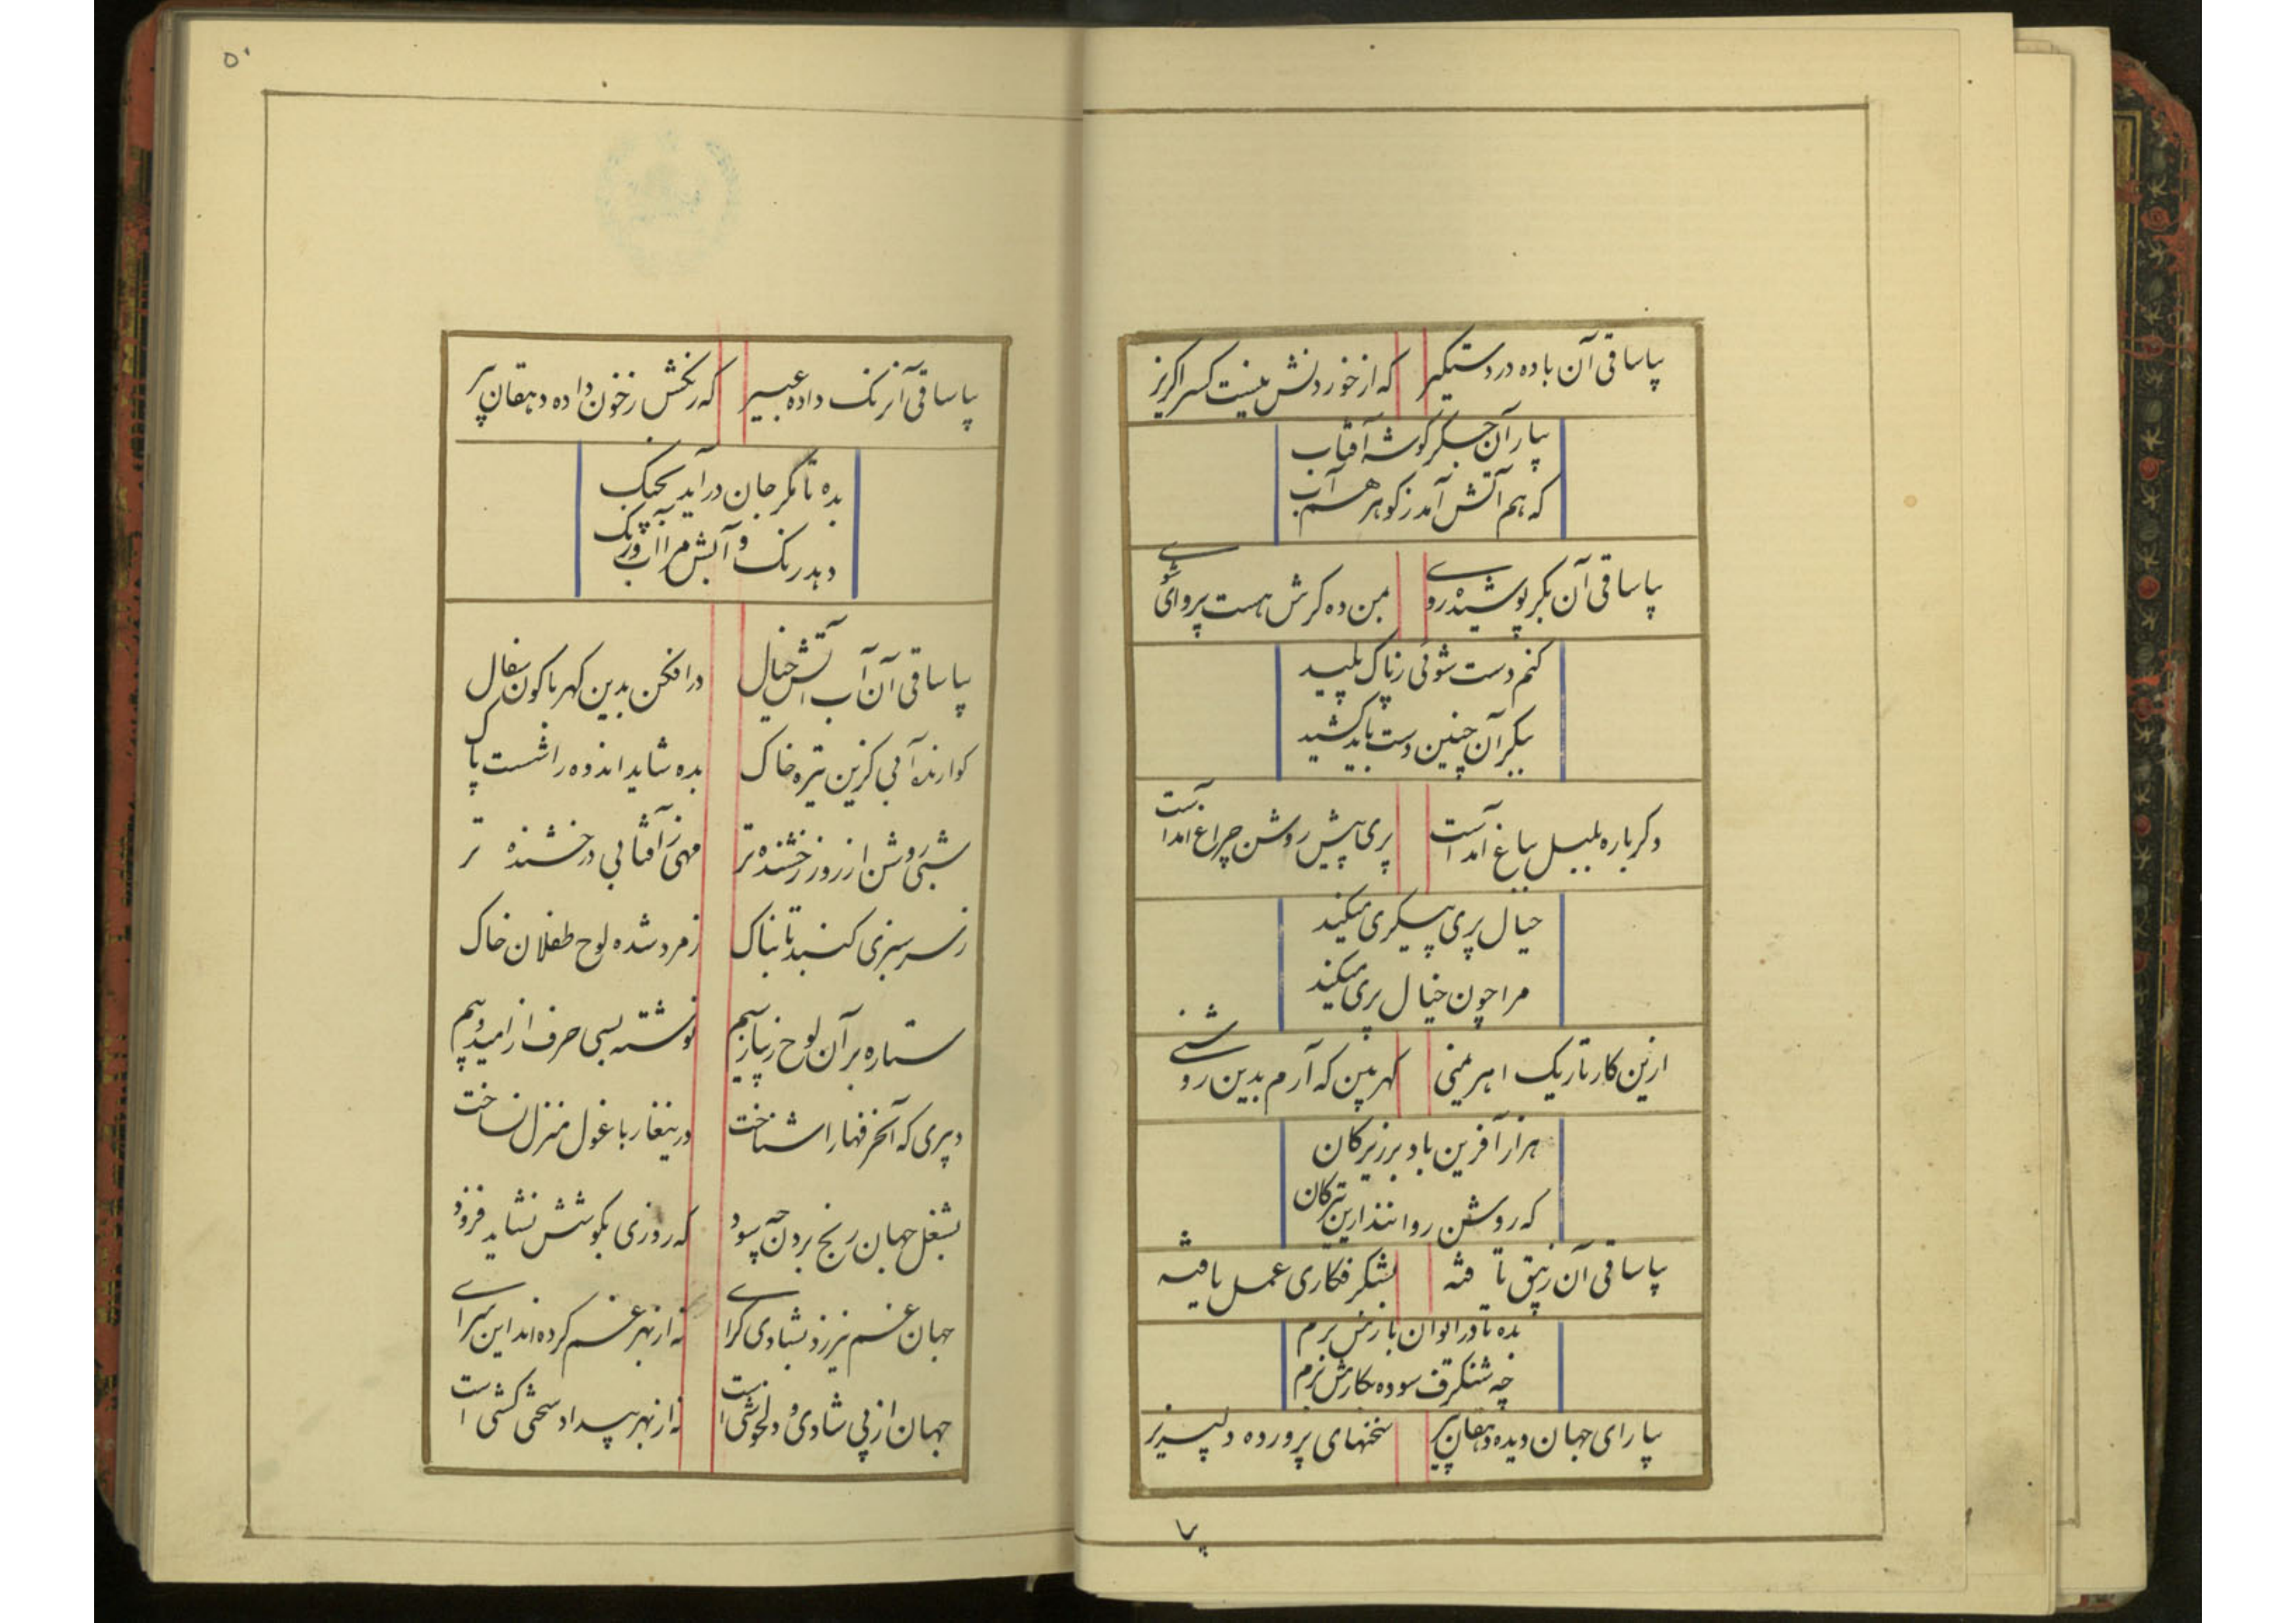 بیا ساقی آن باده در دستگیر که از خوردنش نیست کس را گریز
بیار آن جگر گوشه آفتاب
که هم آتش آمد ز گوهر هم آب
بیا ساقی آن بکر پوشیده روی بمن ده گرش هست پروای شوی
کنم دست شوئی ز پاک پلید
ببکر آن چنین دست باید کشید
دگر باره بلبل بباغ آمد است پری پیش روشن چراغ آمد است
خیال پری پیکری میکند
مرا چون خیال پری میکند
ازین کار تاریک اهریمنی گهر بین که آرم بدین روشنی
هزار آفرین باد بر زیرکان
که روشن روانند ازین تیرگان
بیا ساقی آن زیبق تافته بشنگرف کاری عمل یافته
بده تا در ایوان بارش برم
چه شنگرف سوده بکارش برم
بیا رای جهان دیده دهقان پیر سخنهای پرورده دلپذیر
بیا
۵۰
بیا ساقی آن رنگ داده عبیر که رنگش ز خون داده دهقان پیر
بده تا مگر جان در آید بچنگ
دهد رنگ و آبش مرا آب و رنگ
بیا ساقی آن آب آتش خیال در افکن بدین کهربا گون سفال
گوارنده آبی کزین تیره خاک بده شاید اندوه را شست پاک
شبی روشن از روز رخشنده تر مهی ز آفتابی درخشنده تر
ز سر سبزی گنبد تابناک زمرد شده لوح طفلان خاک
ستاره بر آن لوح زیبا ز سیم نوشته بسی حرف از امید و بیم
دبیری که آنحرفها را شناخت درینغار با غول منزل نساخت
بشغل جهان رنج بردن چه سود که روزی بکوشش نشاید فزود
جهان غم نیرزد بشادی گرای نه از بهر غم کرده اند این سرای
جهان از پی شادی و دلخوشی است نه از بهر بیداد سختی کشی است